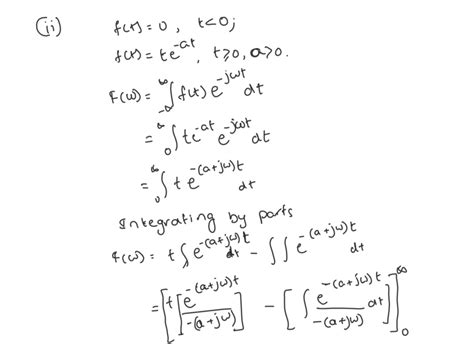 (ii) f(t) = 0, t<0;
f(t) = te^{-at}, t≥0, a>0.
F(ω) = ∫_{-∞}^{∞} f(t) e^{-jωt} dt
= ∫_{0}^{∞} te^{-at} e^{-jωt} dt
= ∫_{0}^{∞} t e^{-(a+jω)t} dt
Integrating by parts
F(ω) = t∫e^{-(a+jω)t} dt - ∫∫e^{-(a+jω)t} dt
= [t[e^{-(a+jω)t}/-(a+jω)] - [∫ e^{-(a+jω)t}/-(a+jω) dt]]_{0}^{∞}